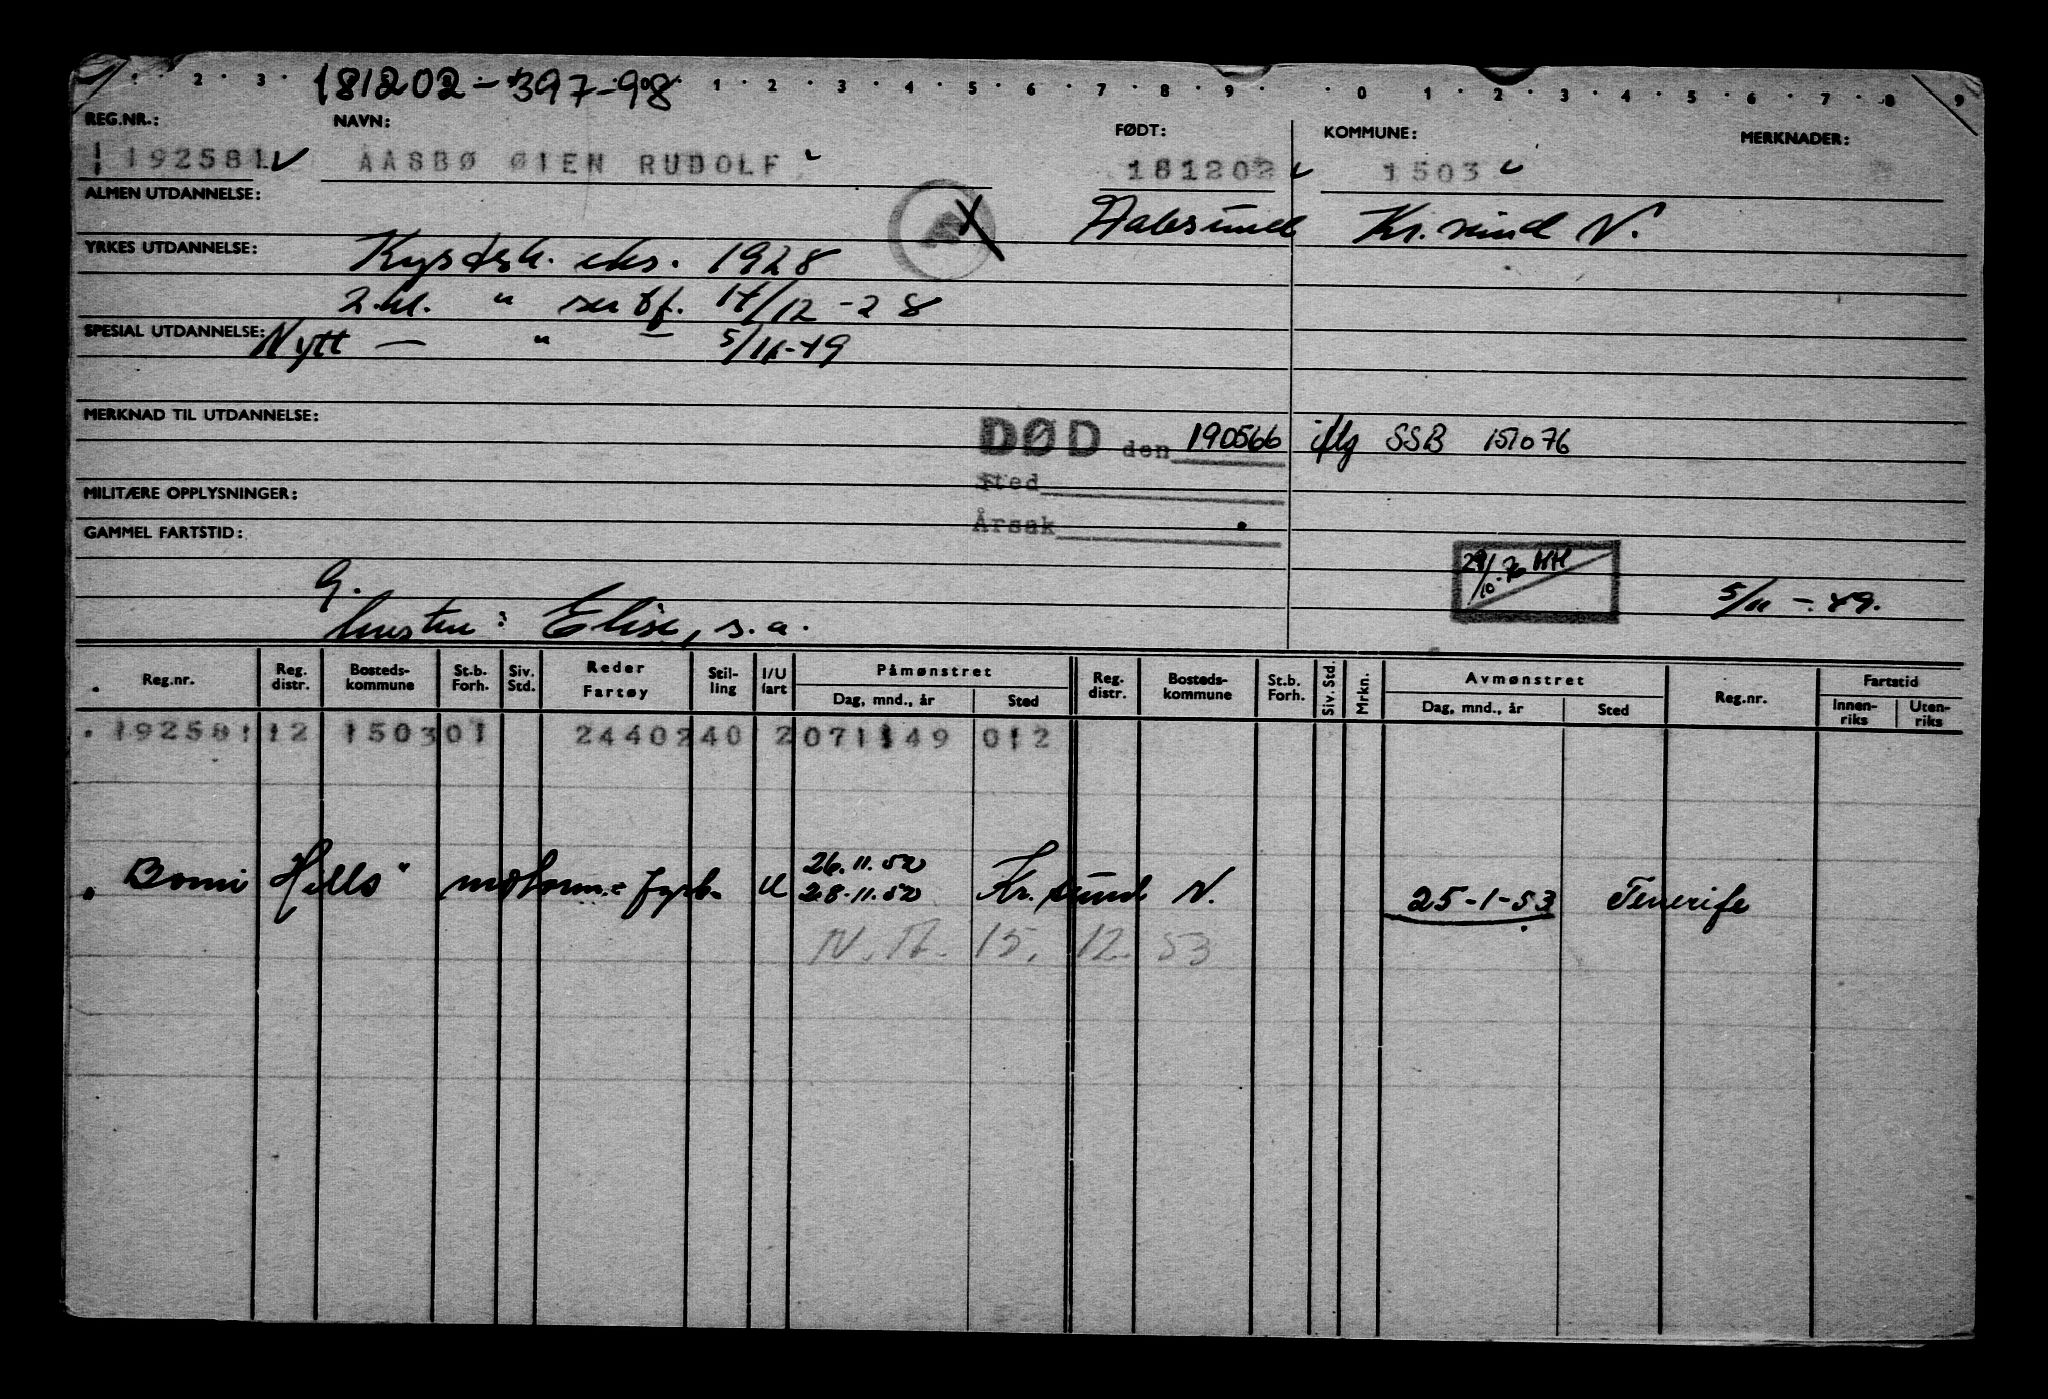 1 2 3 1 2 3 4 5 6 7 8 9 0 1 2 3 4 5 6 7 8 9
181202-397-98
REG.NR.: NAVN: FØDT: KOMMUNE: MERKNADER:
192581 AASBØ ØIEN RUDOLF 181202 1503
ALMEN UTDANNELSE:
Aalesund Kr.sund N.
YRKES UTDANNELSE: Kystsk. eks. 1928
2.kl. " sertf. 14/12-28
SPESIAL UTDANNELSE: Nytt — " — 5/11-49
MERKNAD TIL UTDANNELSE:
DØD den 190566 iflg SSB 151076
Sted
MILITÆRE OPPLYSNINGER:
Årsak
GAMMEL FARTSTID:
29/10-70 HH
g. 5/11-49.
hustru: Elise, s.a.
Reg.nr. Reg. distr. Bosteds-kommune St.b. Forh. Siv. Std. Reder Fartøy Stil-ling I/U fart Påmønstret Dag, mnd., år Sted Reg. distr. Bosteds-kommune St.b. Forh. Siv. Std. Mrkn. Avmønstret Dag, mnd., år Sted Reg.nr. Fartstid Innen-riks Uten-riks
192581 12 1503 01 24402 40 2 071149 012
26.11.52
"Bomi Hills" fyrb. U 28.11.52 Kr.sund N. 25-1-53 Tenerife
15. 12. 53